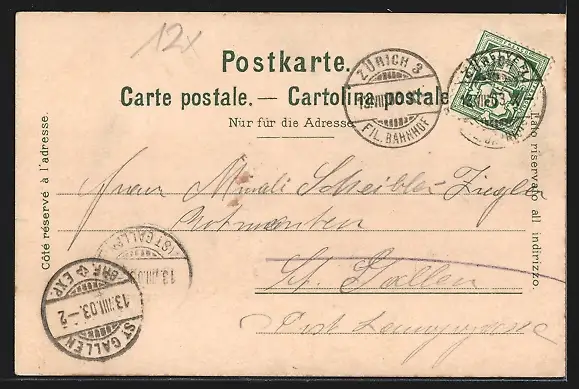 12x
Postkarte.
Carte postale. — Cartolina postale
Nur für die Adresse.
ZÜRICH 3
FIL. BAHNHOF
Côté réservé à l'adresse.
Lato riservato all indirizzo.
Frau Scheibler-Ziegler
Rotmonten
St. Gallen
Post
ST. GALLEN
ST. GALLEN
BRF. EXP.
13.VIII.03.-2